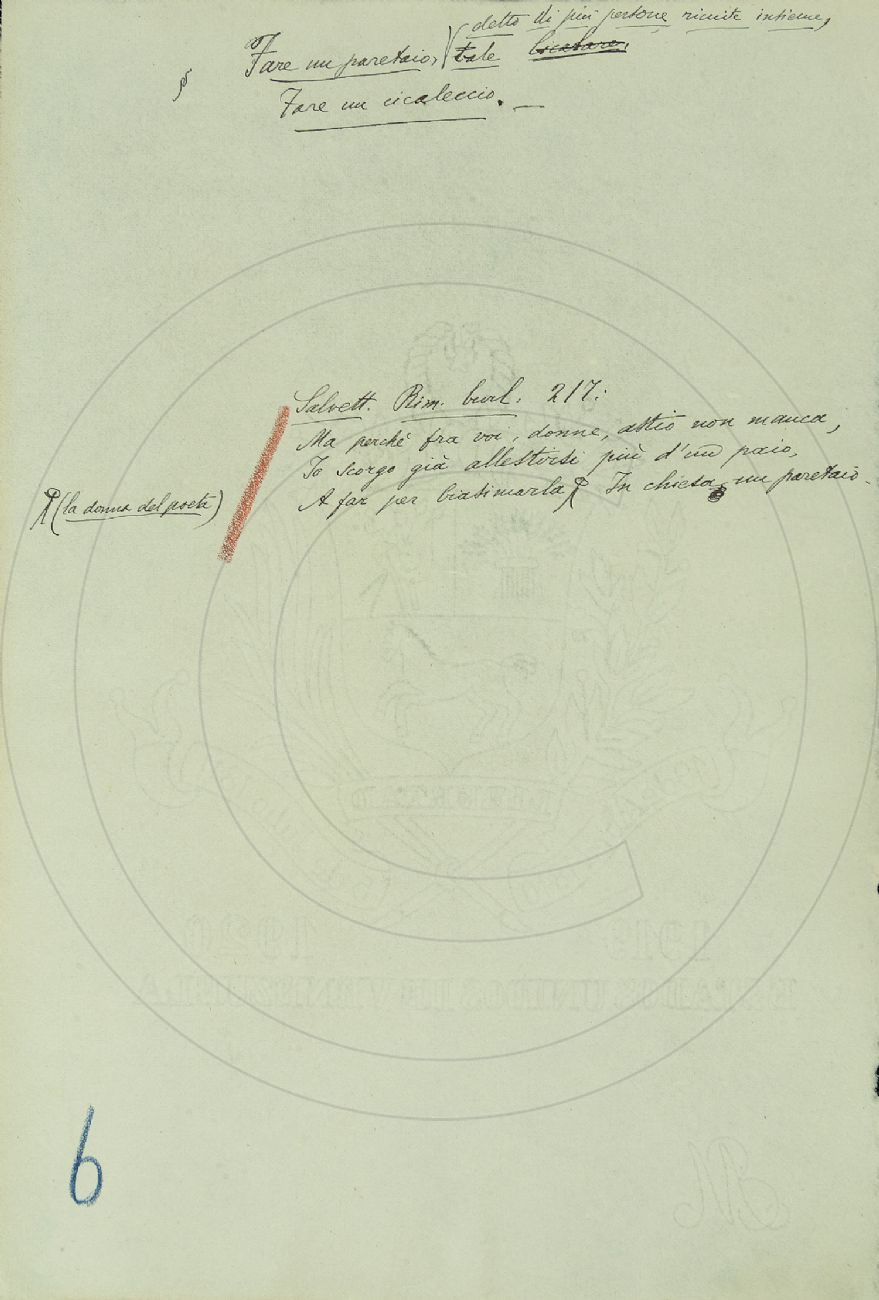 detto di più persone riunite insieme,
§ Fare un paretaio, vale
Fare un cicaleccio. —
Salvett. Rim. burl. 217:
Ma perché fra voi, donne, astio non manca,
Io scorgo già allestirsi più d'un paio,
A far per biasimarla In chiesa un paretaio.
(la donna del poeta)
1919 1920
ESTADOS UNIDOS DE VENEZUELA
6